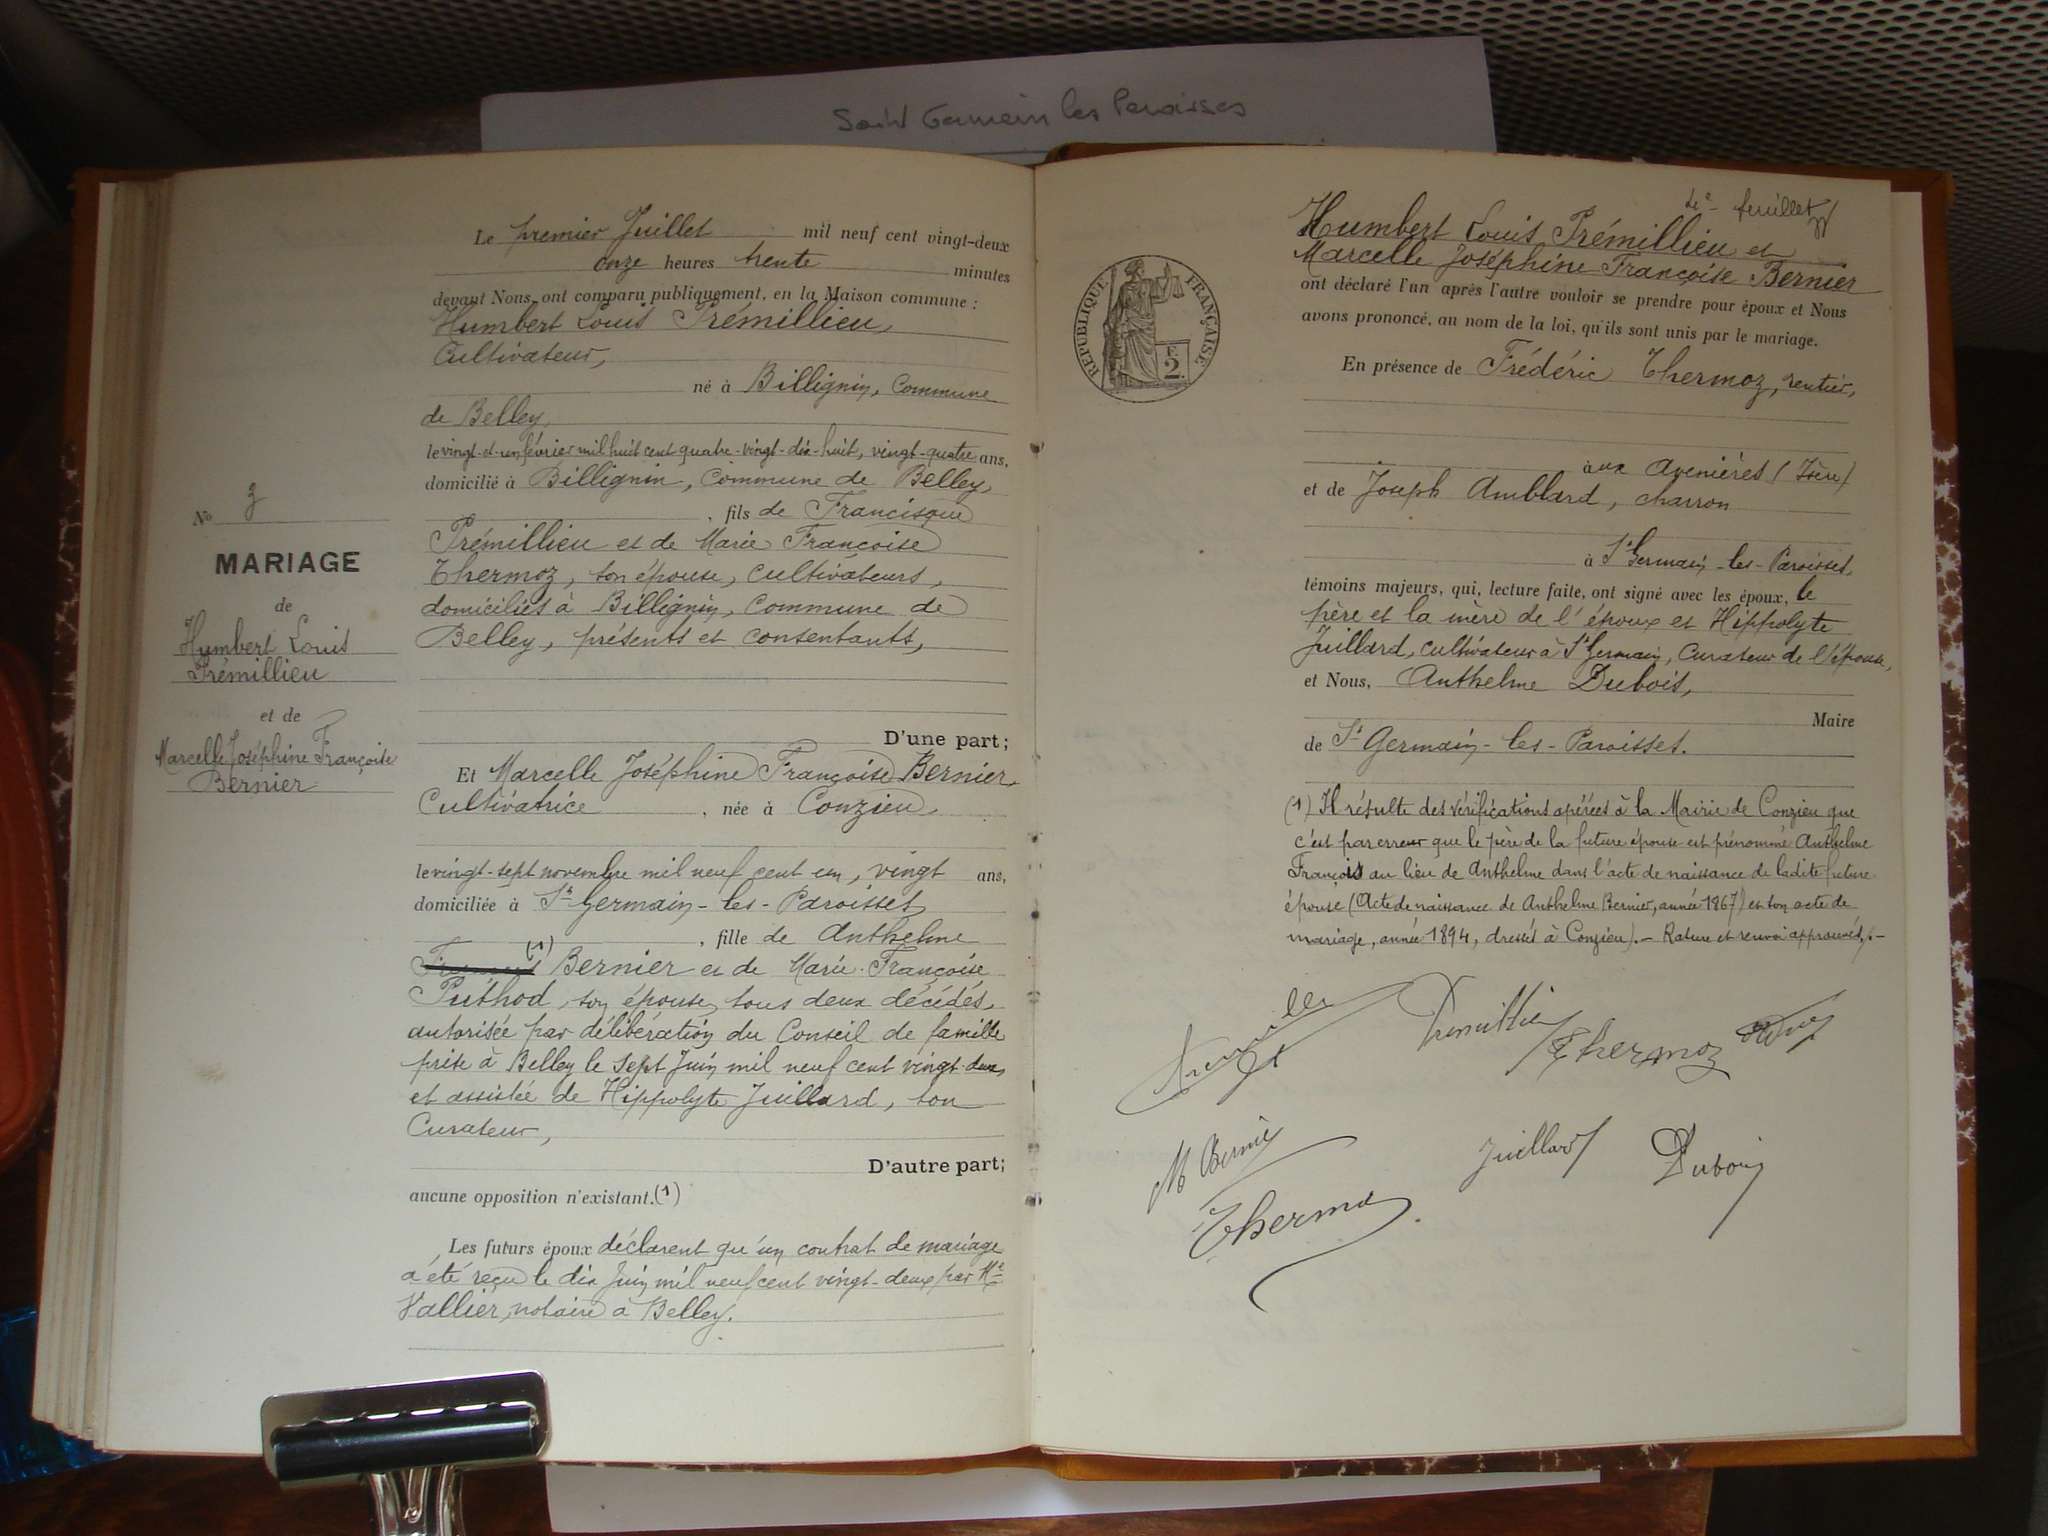 Saint Germain les Paroisses
Le premier Juillet mil neuf cent vingt-deux
onze heures trente minutes
devant Nous, ont comparu publiquement, en la Maison commune :
Humbert Louis Prémillieu,
Cultivateur,
né à Billignin, Commune
de Belley,
le vingt-et-un février mil huit cent quatre-vingt-dix-huit, vingt-quatre ans,
domicilié à Billignin, Commune de Belley,
, fils de Francisque
Prémillieu et de Marie Françoise
Thermoz, son épouse, cultivateurs,
domiciliés à Billignin, Commune de
Belley, présents et consentants,
D'une part;
Et Marcelle Joséphine Françoise Bernier
Cultivatrice , née à Conzieu,
le vingt-sept novembre mil neuf cent un, vingt ans,
domiciliée à St Germain-les-Paroisses
, fille de Anthelme
(1) Bernier et de Marie Françoise
Puthod, son épouse, tous deux décédés,
autorisée par délibération du Conseil de famille
prise à Belley le sept Juin mil neuf cent vingt-deux,
et assistée de Hippolyte Juillard, son
Curateur,
D'autre part;
aucune opposition n'existant.(1)
Les futurs époux déclarent qu'un contrat de mariage
a été reçu le dix Juin mil neuf cent vingt-deux par Me
Vallier, notaire à Belley.
No 3
MARIAGE
de
Humbert Louis
Prémillieu
et de
Marcelle Joséphine Françoise
Bernier
feuillet
RÉPUBLIQUE FRANÇAISE
2 F.
Humbert Louis Prémillieu et
Marcelle Joséphine Françoise Bernier
ont déclaré l'un après l'autre vouloir se prendre pour époux et Nous
avons prononcé, au nom de la loi, qu'ils sont unis par le mariage.
En présence de Frédéric Thermoz, rentier,
aux Avenières (Isère)
et de Joseph Amblard, charron
à St Germain-les-Paroisses,
témoins majeurs, qui, lecture faite, ont signé avec les époux, le
père et la mère de l'époux et Hippolyte
Juillard, cultivateur à St Germain, Curateur de l'épouse,
et Nous, Anthelme Dubois,
Maire
de St Germain-les-Paroisses.
(1) Il résulte des vérifications opérées à la Mairie de Conzieu que
c'est par erreur que le père de la future épouse est prénommé Anthelme
François au lieu de Anthelme dans l'acte de naissance de ladite future
épouse (Acte de naissance de Anthelme Bernier, année 1867) et son acte de
mariage, année 1894, dressés à Conzieu).- Rature et renvoi approuvés.-
Premillieu
Thermoz
M Bernier
Juillard
Dubois
Thermoz